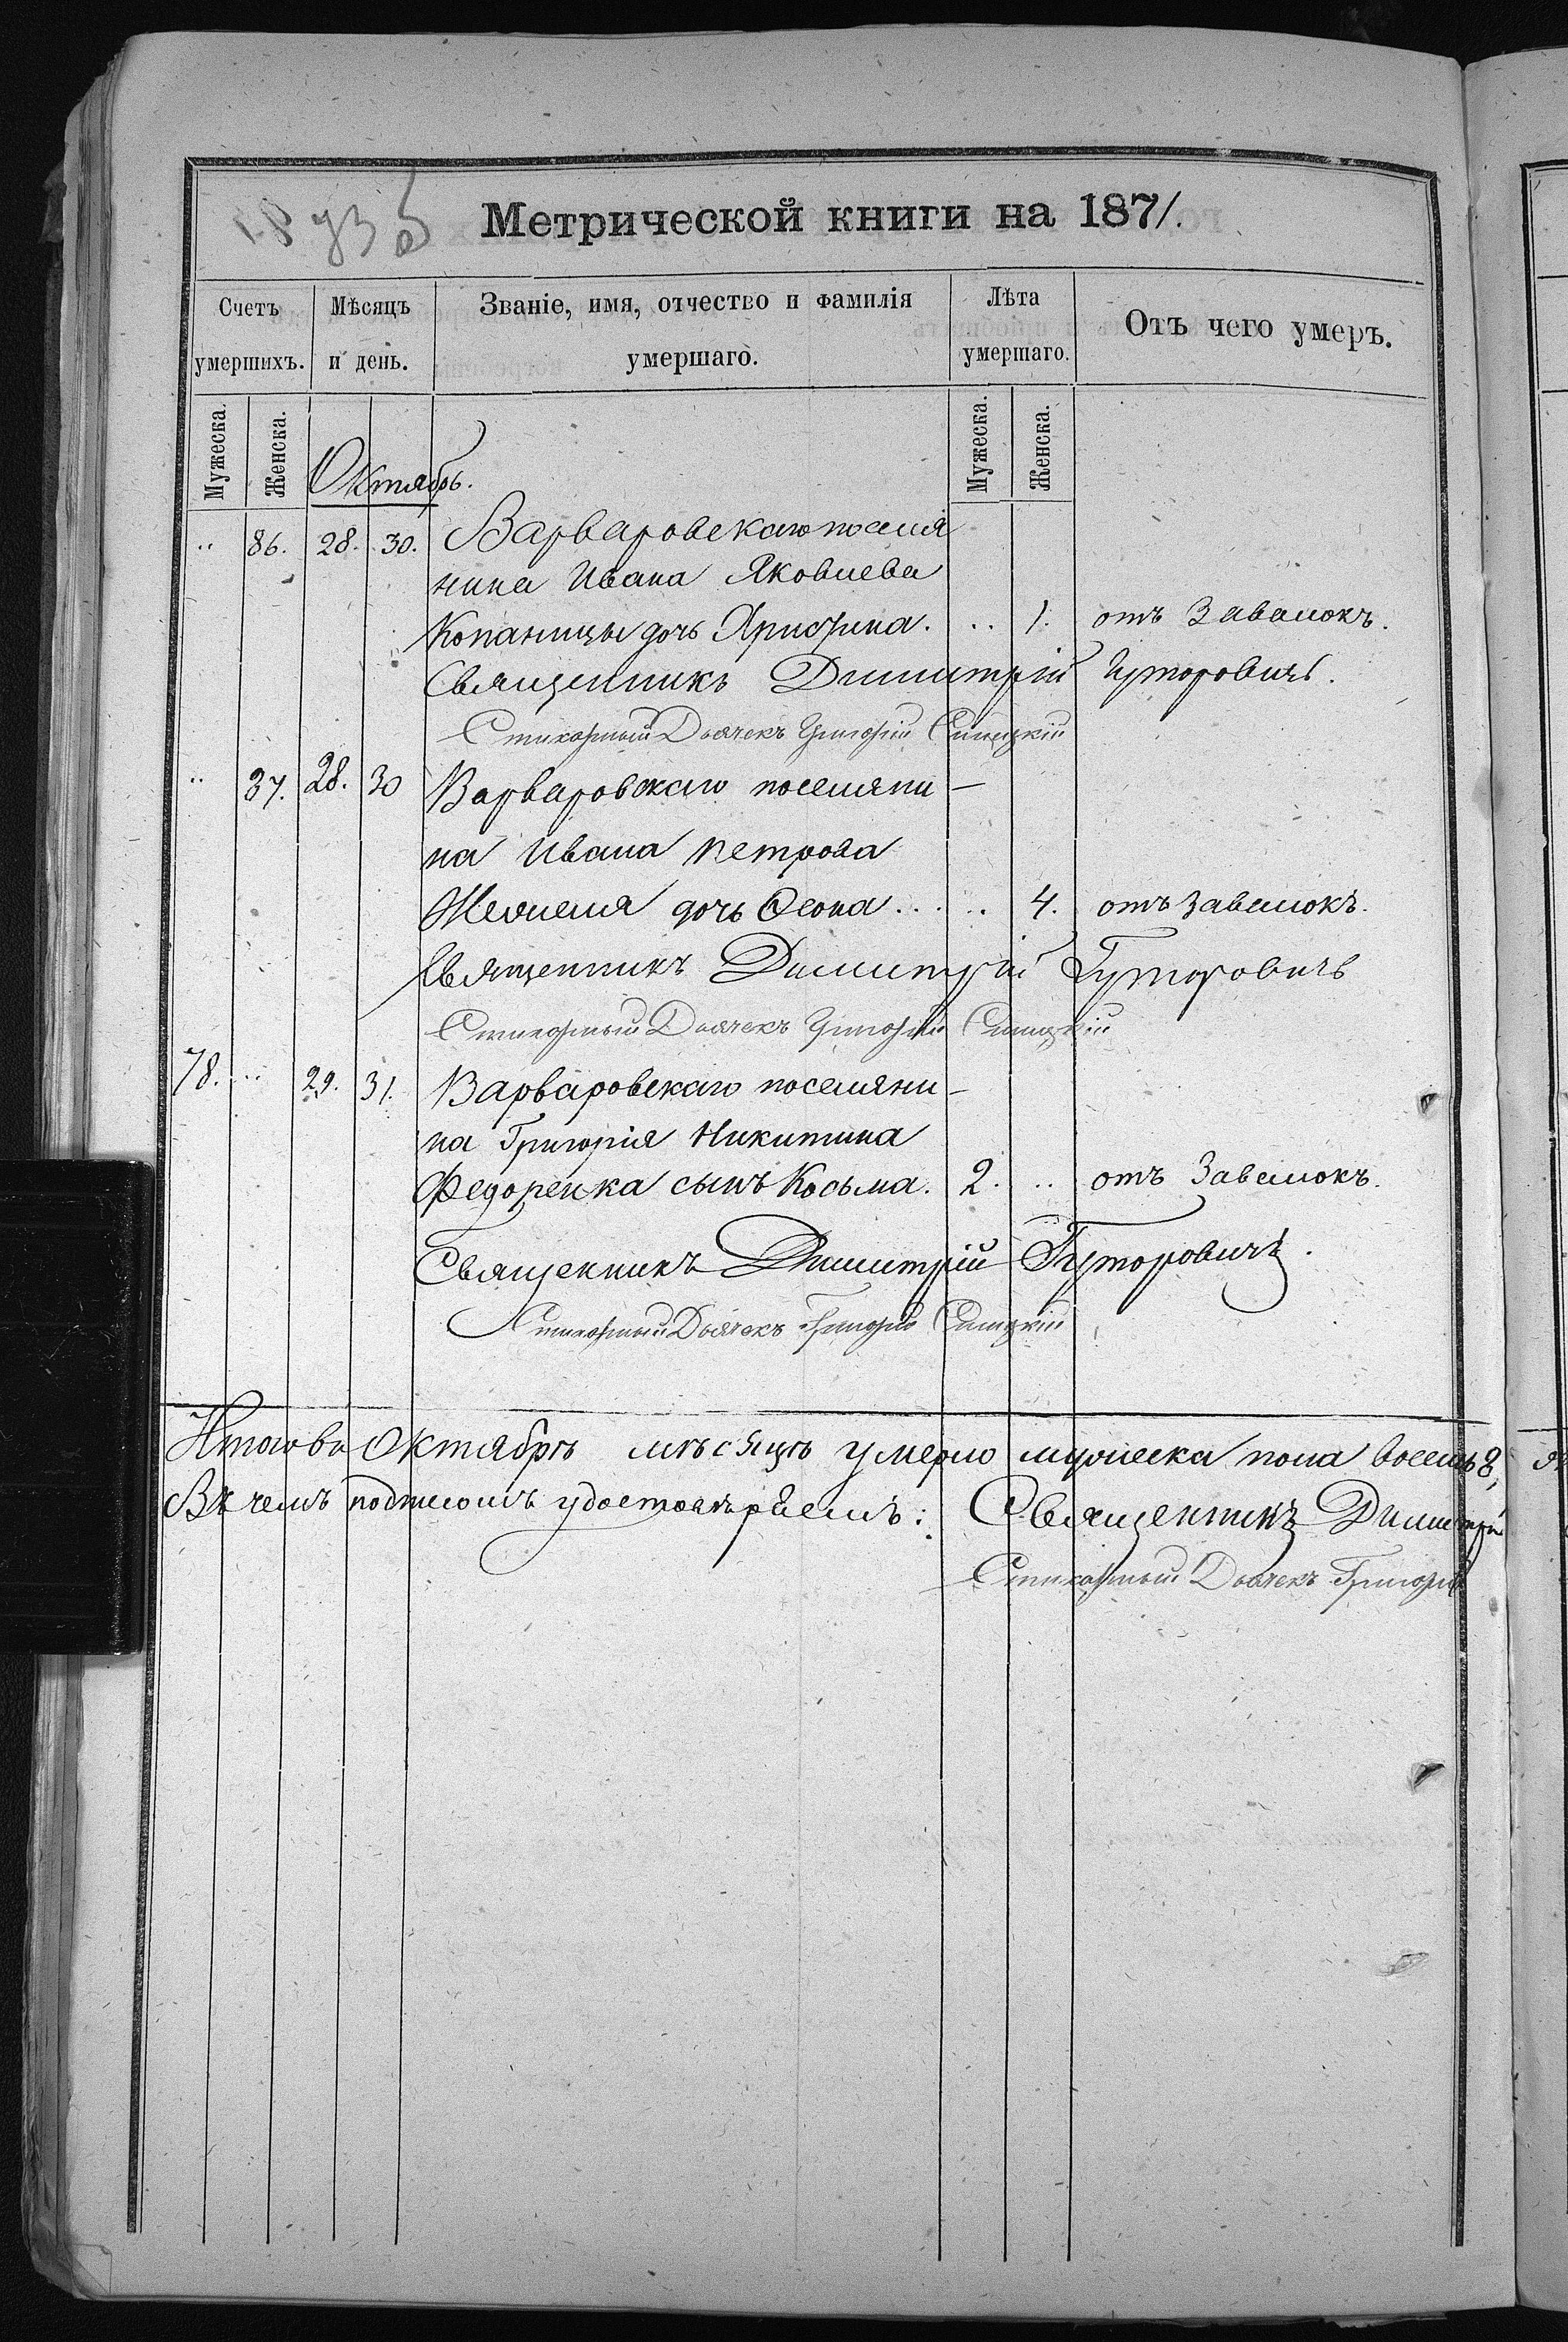 Метрической книги на 1871.
Счетъ умершихъ.
Мѣсяцъ и день.
Званіе, имя, отчество и фамилія умершаго.
Лѣта умершаго.
Отъ чего умеръ.
Мужеска.
Женска.
Мужеска.
Женска.
Октябрь.
.. 86. 28. 30. Варваровскаго поселя
нина Ивана Яковлева
Копаницы дочь Христина. .. 1. отъ Завалокъ.
Священникъ Димитрій Гуторовичъ.
Стихарный Дьячекъ Григорій
.. 37. 28. 30 Варваровскаго поселяни–
на Ивана Петрова
дочь Ѳеона..... 4. отъ завалокъ.
Священникъ Димитрій Гуторовичъ
Стихарный Дьячекъ Григорій
78. ... 29. 31. Варваровскаго поселяни–
на Григорія Никитина
Федоренка сынъ Косьма. 2. .. отъ Завалокъ.
Священникъ Димитрій Гуторовичъ.
Стихарный Дьячекъ Григорій
Итого въ Октябрѣ мѣсяцѣ умерло мужеска пола восемь 8,
Въ чемъ подписомъ удостовѣряемъ: Священникъ Димитрій
Стихарный Дьячекъ Григорій